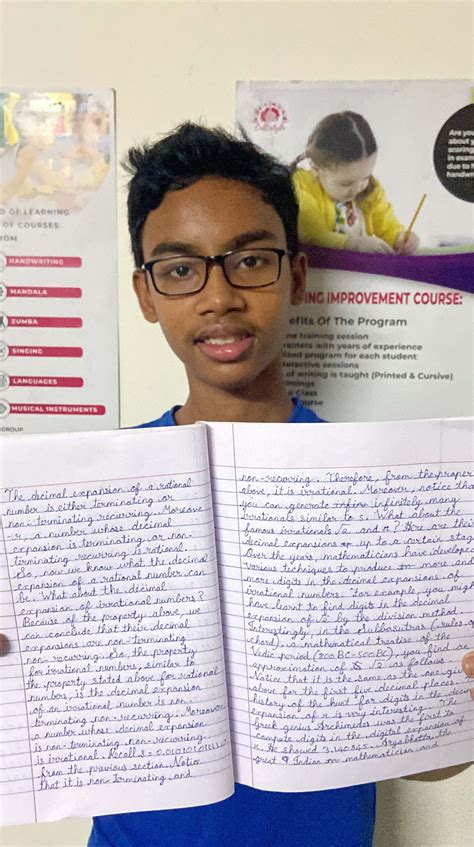 D OF LEARNING
OF COURSES
ROM
HANDWRITING
MANDALA
ZUMBA
SINGING
LANGUAGES
MUSICAL INSTRUMENTS
GROUP
Are you
about y
scoring
in exam
due to
handwr
ING IMPROVEMENT COURSE:
efits Of The Program
me training session
rainers with years of experience
ized program for each student
eractive sessions
of writing is taught (Printed & Cursive)
timings
Class
ourse
The decimal expansion of a rational
number is either terminating or
non-terminating recurring. Moreove
-r, a number whose decimal
expansion is terminating or non-
terminating recurring is rational.
So, now we know what the decimal
expansion of a rational number can
be. What about the decimal
expansion of irrational numbers?
Because of the property above, we
can conclude that their decimal
expansions are non-terminating
non-recurring. So, the property
for irrational numbers, similar to
the property stated above for rational
numbers, is the decimal expansion
of an irrational number is non-
terminating non-recurring. Moreover
a number whose decimal expansion
is non-terminating non-recurring
is irrational. Recall s = 0.01010101110
from the previous section. Notice
that it is non-terminating and
non-recurring. Therefore, from the proper
above, it is irrational. Moreover, notice tha
you can generate infinitely many
irrationals similar to s. What about the
famous irrationals and π? Here are their
decimal expansions up to a certain stag
Over the years, mathematicians have develope
various techniques to produce more and
more digits in the decimal expansions of
irrational numbers. For example, you migh
have learnt to find digits in the decimal
expansion of √2 by the division method.
Interestingly, in the Sulbasutras (rules of
chord), a mathematical treatise of the
Vedic period (800 BC-500 BC), you find an
approximation of √2 as follows.
Notice that it is the same as the one giv
above for the first five decimal places.
history of the hunt for digits in the deci
expansion of π is very interesting. The
Greek genius Archimedes was the first to
compute digits in the digital expansion of
π. He showed 3.140845. Aryabhatta the
great Indian mathematician and